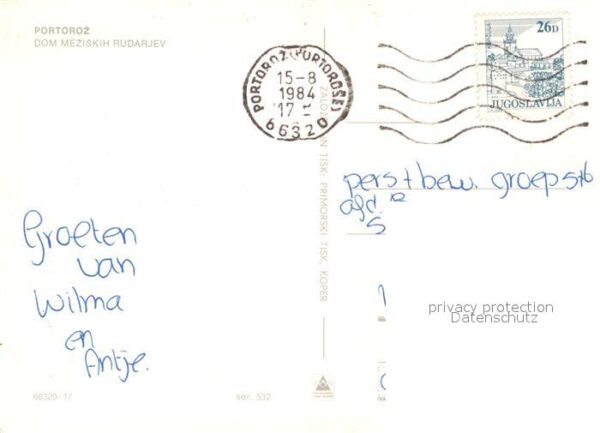 PORTOROŽ
DOM MEŽIŠKIH RUDARJEV
PORTOROŽ (PORTOROSE)
15-8
1984
17
66320
26D
JUGOSLAVIJA
TISK · PRIMORSKI TISK, KOPER
pers + bew. groep
afd.
5
Groeten
van
Wilma
en
Antje.
privacy protection
Datenschutz
66320/17
ser. 532